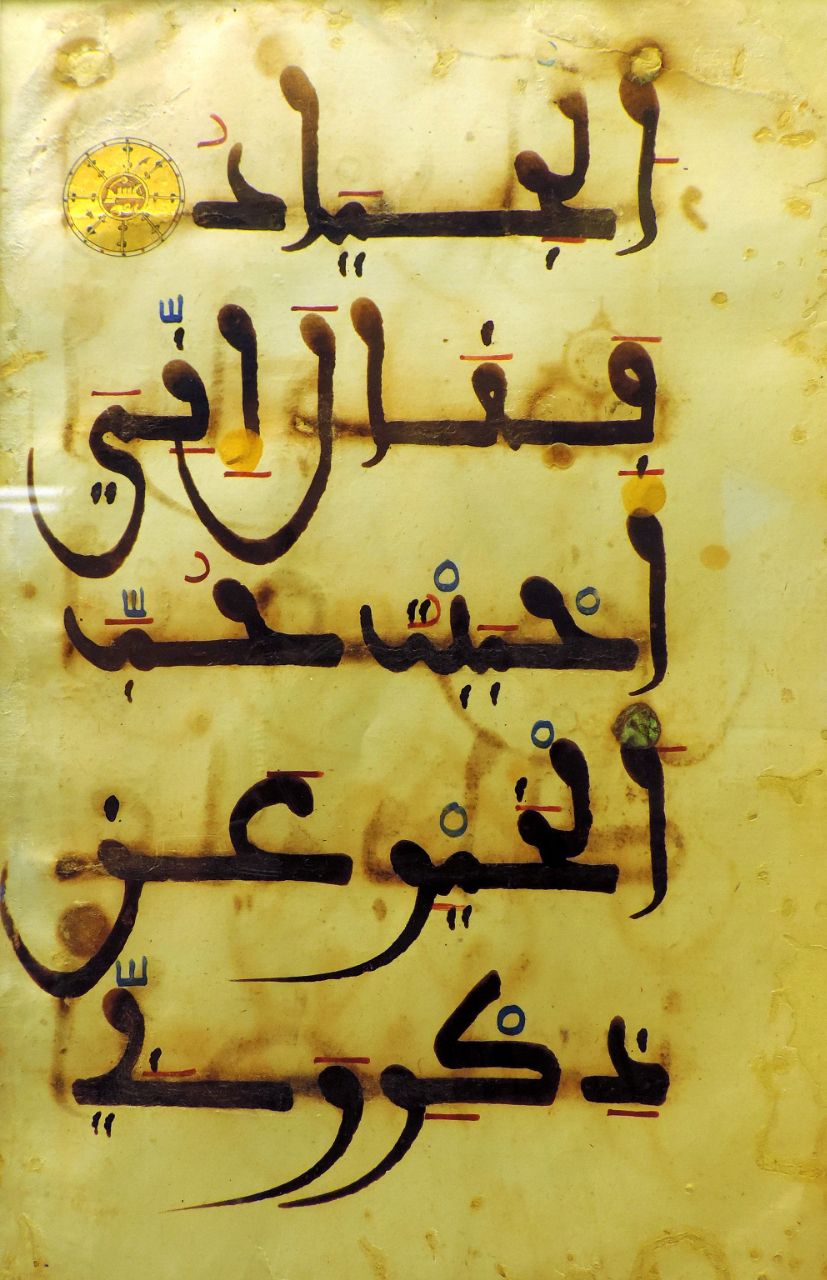 اَلْجِيَادُ
فَقَالَ إِنِّيَ
أَحْبَبْتُ حُبَّ
اَلْخَيْرِ عَن
ذِكْرِ رَبِّي